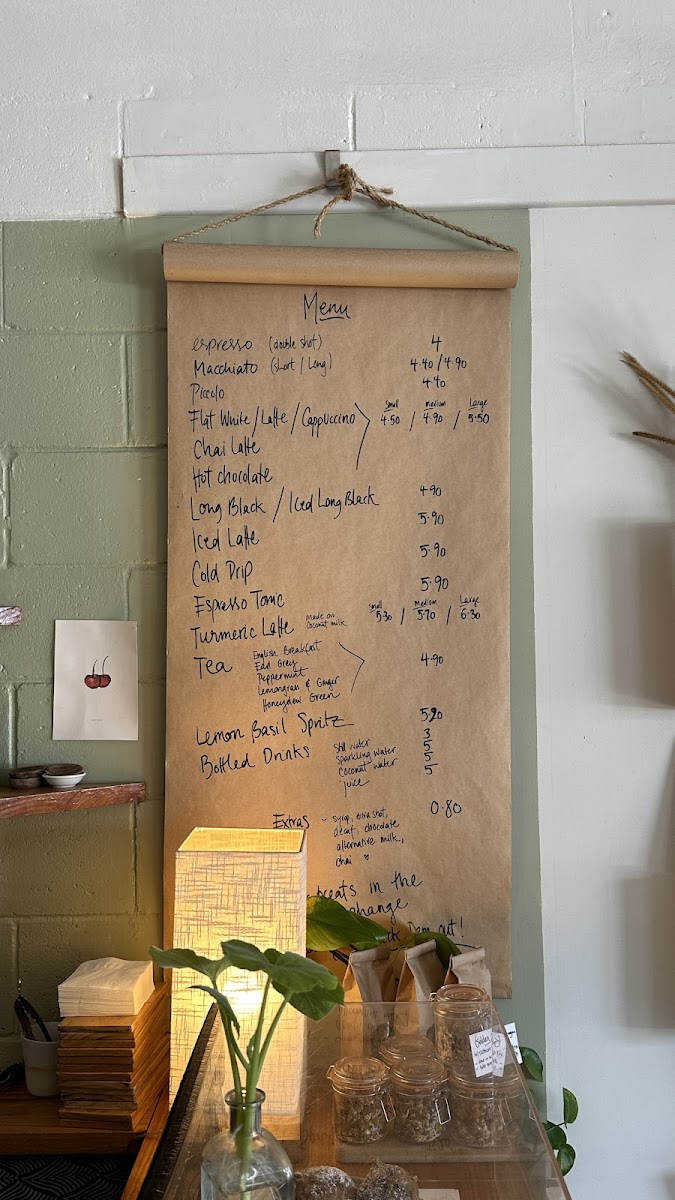 Menu
espresso (double shot) 4
Macchiato (short / Long) 4.40 / 4.90
Piccolo 4.40
Flat White / Latte / Cappuccino small 4.50 / medium 4.90 / Large 5.50
Chai Latte
Hot chocolate
Long Black / Iced Long Black 4.90
Iced Latte 5.90
Cold Drip 5.90
Espresso Tonic 5.90
Turmeric Latte made on coconut milk small 5.30 / medium 5.70 / Large 6.30
Tea English Breakfast
Earl Grey
Peppermint 4.90
Lemongrass & Ginger
Honeydew Green
Lemon Basil Spritz 5.20
Bottled Drinks Still water 3
sparkling water 5
Coconut water 5
juice 5
Extras - syrup, extra shot, 0.80
decaf, chocolate
alternative milk,
chai
in the
out!